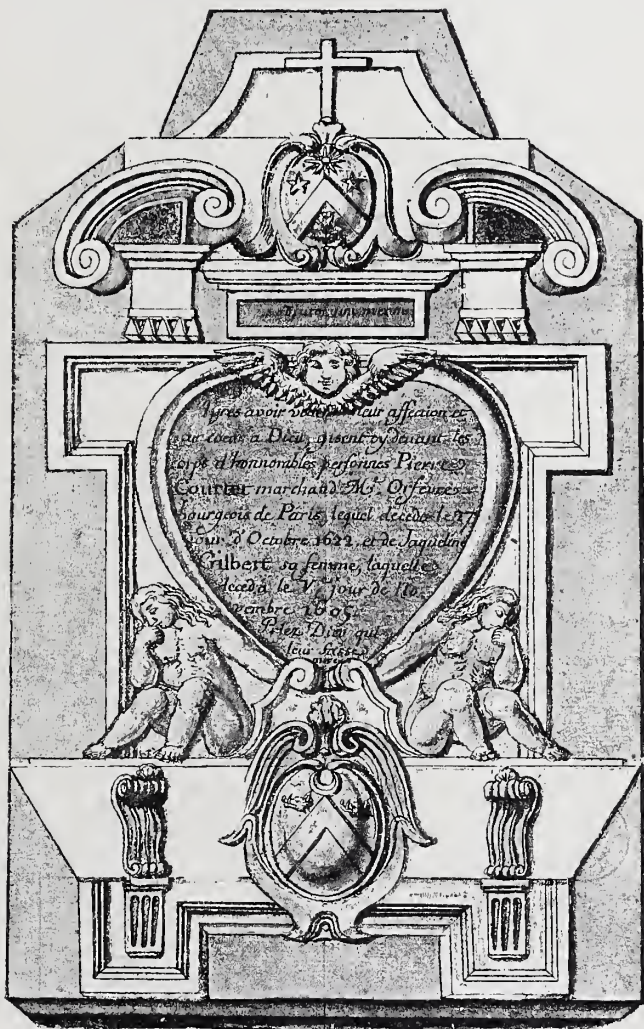 Apres avoir leur affection et
cœur a Dieu, gisent cy devant les
corps d'honnorables personnes Pierre
Courtet marchand Mᵉ. Orfeure
bourgeois de Paris, lequel deceda le 27
jour d'Octobre 1622. et de Jaqueline
Gilbert sa femme, laquelle
deceda le Vᵉ jour de No
vembre 1605
Priez Dieu qui
leur fasse